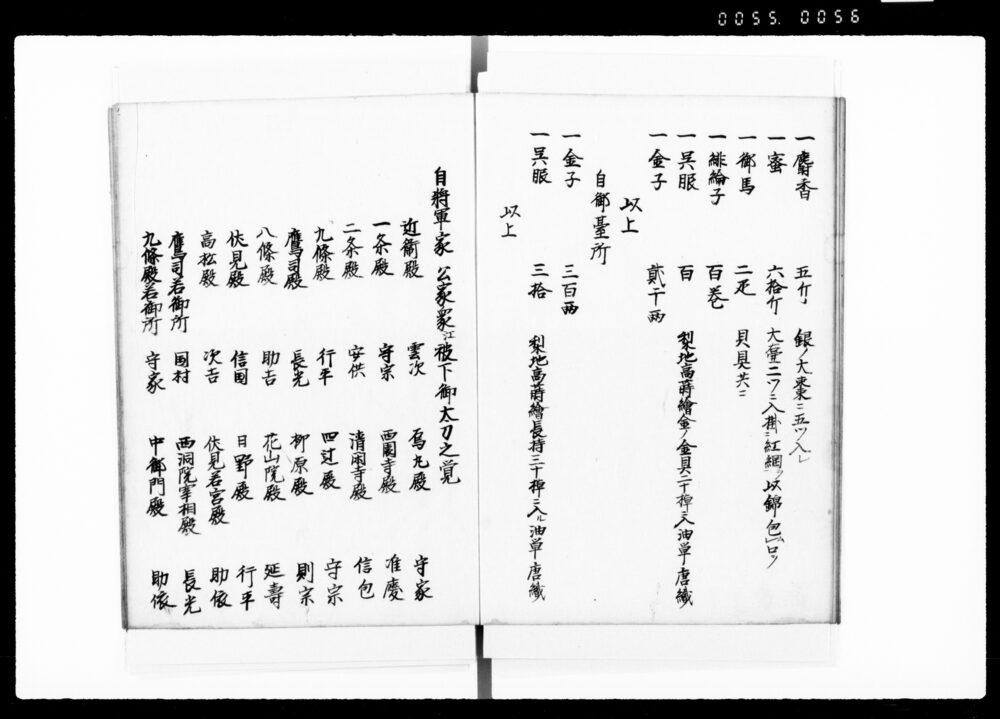 0055. 0056
一麝香　五斤　銀ノ大束ニ五ツ入レ
一蜜　六拾斤　大壷二ツニ入掛ニ紅綱ヲ以錦包ム口ヲ
一御馬　二疋　貝具共ニ
一緋綸子　百巻
一呉服　百　梨地高蒔繪金ノ金具二十棹ニ入油単唐織
一金子　貳千両
以上
自御臺所
一金子　三百両
一呉服　三拾　梨地高蒔繪長持三十棹ニ入ル油単唐織
以上
自將軍家公家衆江被下御太刀之覚
近衛殿　雲次　烏丸殿　守家
一条殿　守宗　西園寺殿　准慶
二条殿　安供　清閑寺殿　信包
九條殿　行平　四辻殿　守宗
鷹司殿　長光　柳原殿　則宗
八條殿　助吉　花山院殿　延壽
伏見殿　信国　日野殿　行平
高松殿　次吉　伏見若宮殿　助依
鷹司若御所　国村　西洞院宰相殿　長光
九條殿若御所　守家　中御門殿　助依